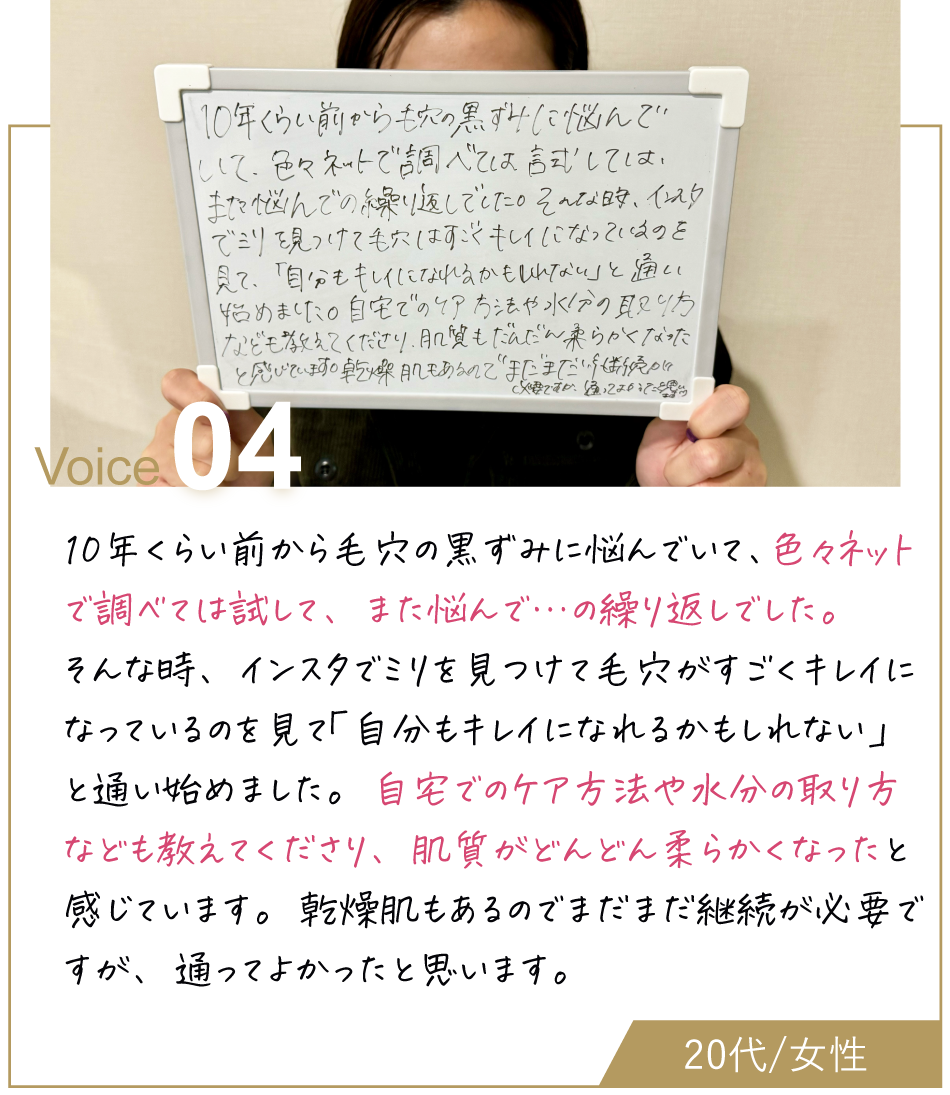 10年くらい前から毛穴の黒ずみに悩んで
いて、色々ネットで調べては試しては、
また悩んでの繰り返しでした。そんな時、インスタ
でミリを見つけて毛穴はすごくキレイになっているのを
見て、「自分もキレイになれるかもしれない」と通い
始めました。自宅でのケア方法や水分の取り方
なども教えてくださり、肌質もだんだん柔らかくなった
と感じています。乾燥肌もあるのでまだまだ継続が
必要ですが、通ってよかったと思います
Voice 04
10年くらい前から毛穴の黒ずみに悩んでいて、色々ネット
で調べては試して、また悩んで…の繰り返しでした。
そんな時、インスタでミリを見つけて毛穴がすごくキレイに
なっているのを見て「自分もキレイになれるかもしれない」
と通い始めました。自宅でのケア方法や水分の取り方
なども教えてくださり、肌質がどんどん柔らかくなったと
感じています。乾燥肌もあるのでまだまだ継続が必要で
すが、通ってよかったと思います。
20代/女性